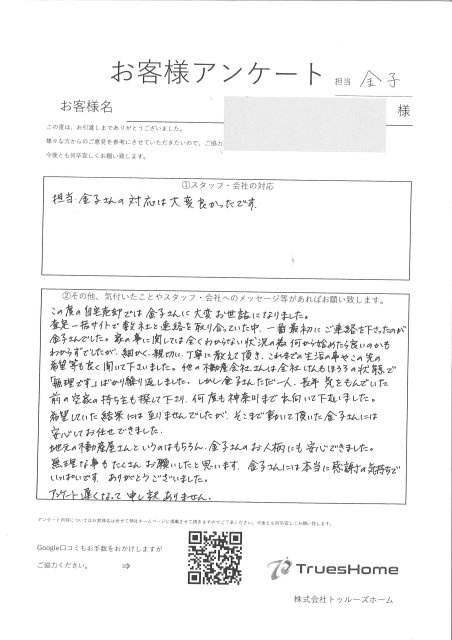 お客様アンケート
担当 金子
お客様名
様
この度は、お引渡しまでありがとうございました。
様々な方からのご意見を参考にさせていただきたいので、ご協力
今後とも何卒宜しくお願い致します。
①スタッフ・会社の対応
担当 金子さんの対応は大変良かったです。
②その他、気付いたことやスタッフ・会社へのメッセージ等があればお願い致します。
この度の自宅売却では金子さんに大変お世話になりました。
査定一括サイトで数社と連絡を取り合っていた中、一番最初にご連絡を下さったのが
金子さんでした。家の事に関しては全くわからない状況の為何から始めたら良いのかも
わからずでしたが、細かく、親切に、丁寧に教えて頂き、これまでの生活の事やこの先の
希望等も良く聞いて下さいました。他の不動産会社さんは会社さんもほぼうの状態で
「無理です」ばかり繰り返しました。しかし金子さんただ一人、長年気をもんでいた
前の空家の持ち主も探して下さり、何度も神奈川まで出向いて下さいました。
希望していた結果には至りませんでしたが、そこまで動いて頂いた金子さんには
安心してお任せできました。
地元の不動産屋さんというのはもちろん、金子さんのお人柄にも安心できました。
無理な事もたくさんお願いしたと思います。金子さんには本当に感謝の気持ちで
いっぱいです。ありがとうございました。
アンケート遅くなって申し訳ありません。
アンケート内容についてはお客様名は伏せて弊社ホームページに掲載させて頂きますのでご了承ください。今後とも何卒宜しくお願い致します。
Google口コミもお手数をおかけしますが
ご協力ください。 ⇒
TruesHome
株式会社トゥルーズホーム